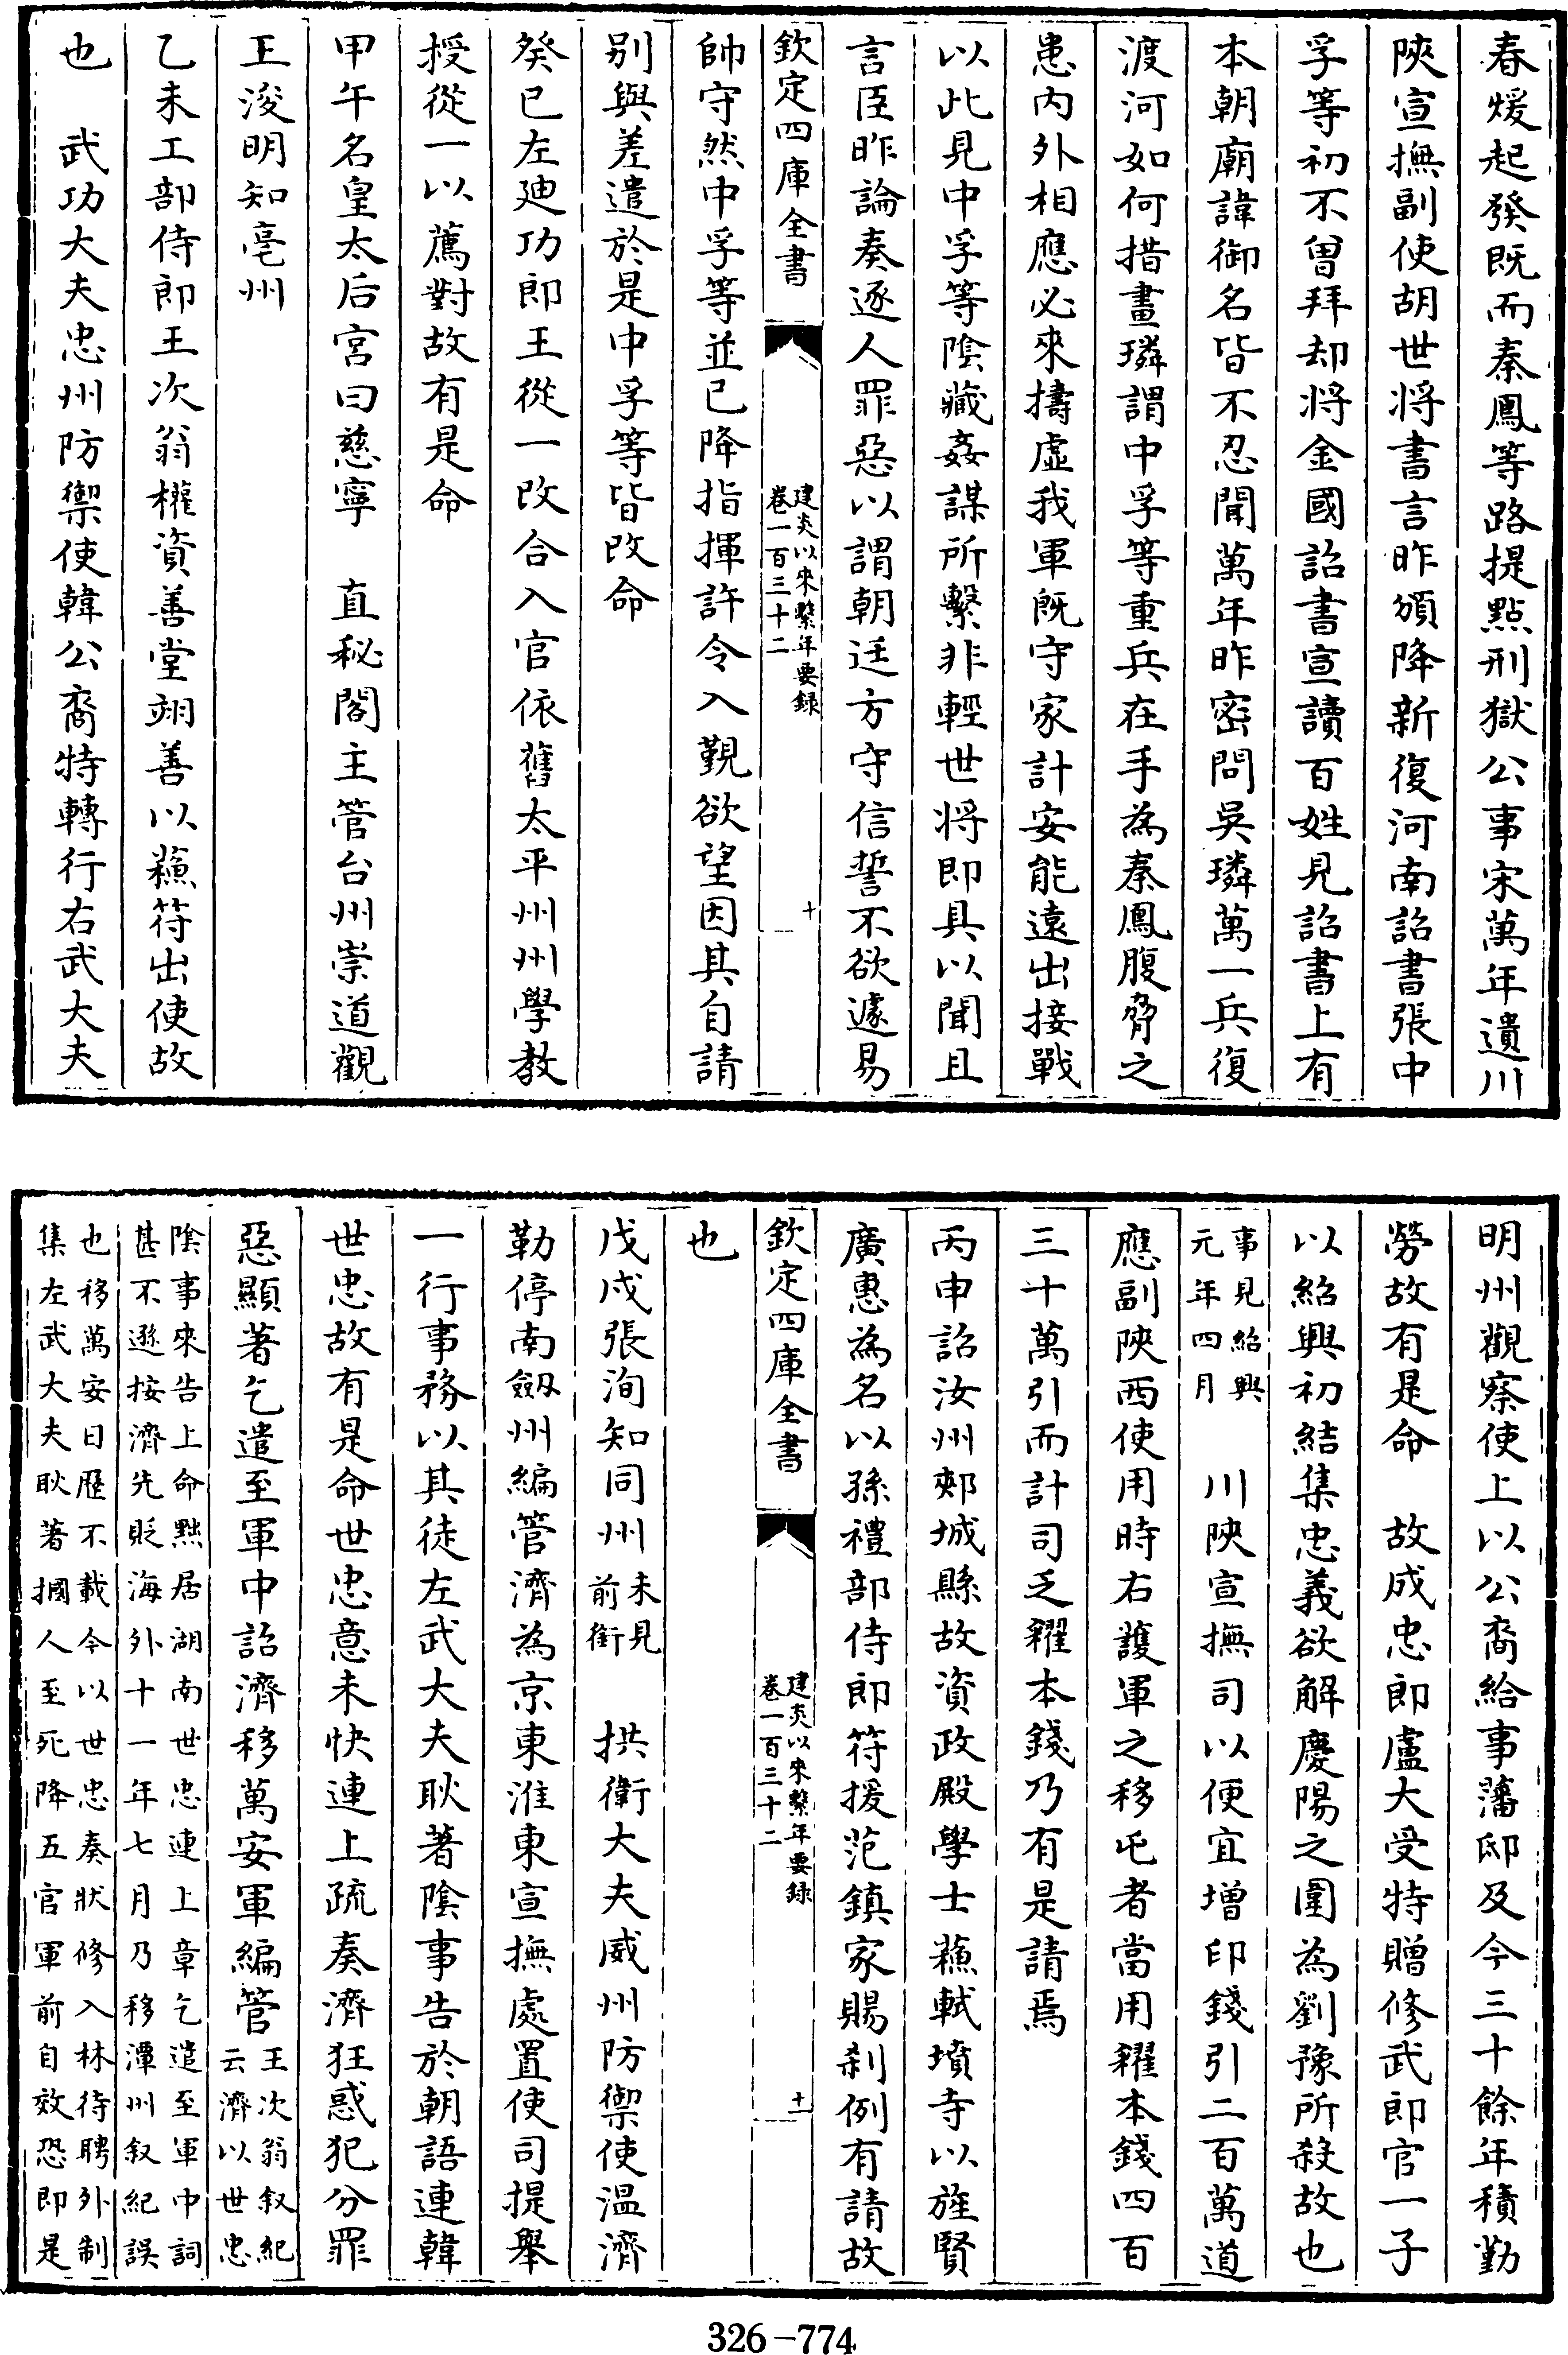 春煖起發既而秦鳳等路提㸃刑獄公事宋萬年遺川
陜宣撫副使胡世将書言昨頒降新復河南詔書張中
孚等初不曽拜却将金國詔書宣讀百姓見詔書上有
本朝廟諱御名皆不忍聞萬年昨宻問吳璘萬一兵復
渡河如何措畫璘謂中孚等重兵在手為秦鳳腹脅之
患内外相應必來擣虛我軍既守家計安能遠出接戰
以此見中孚等隂藏姦謀所繫非輕世将即具以聞且
言臣昨論奏逐人罪惡以謂朝廷方守信誓不欲遽易
欽定四庫全書
建炎以來繫年要録
卷一百三十二
十
帥守然中孚等並已降指揮許令入覲欲望因其自請
别與差遣於是中孚等皆改命
癸巳左廸功郎王從一改合入官依舊太平州州學教
授從一以薦對故有是命
甲午名皇太后宫曰慈寧　直秘閣主管台州崇道觀
王浚明知亳州
乙未工部侍郎王次翁權資善堂翊善以蘓符出使故
也　武功大夫忠州防禦使韓公裔特轉行右武大夫
明州觀察使上以公裔給事藩邸及今三十餘年積勤
勞故有是命　故成忠郎盧大受特贈修武郎官一子
以紹興初結集忠義欲解慶陽之圍為劉豫所殺故也
事見紹興
元年四月
川陜宣撫司以便宜增印錢引二百萬道
應副陜西使用時右䕶軍之移屯者當用糴本錢四百
三十萬引而計司乏糴本錢乃有是請焉
丙申詔汝州郟城縣故資政殿學士蘓軾墳寺以旌賢
廣惠為名以孫禮部侍郎符援范鎮家賜刹例有請故
欽定四庫全書
建炎以來繫年要録
卷一百三十二
十一
也
戊戌張洵知同州
未見
前銜
拱衛大夫威州防禦使温濟
勒停南劔州編管濟為京東淮東宣撫處置使司提舉
一行事務以其徒左武大夫耿著隂事告於朝語連韓
世忠故有是命世忠意未快連上疏奏濟狂惑犯分罪
惡顯著乞遣至軍中詔濟移萬安軍編管
王次翁叙紀
云濟以世忠
隂事來告上命黥居湖南世忠連上章乞遣至軍中詞
甚不遜按濟先貶海外十一年七月乃移潭州叙紀誤
也移萬安日歷不載今以世忠奏狀修入林待聘外制
集左武大夫耿著摑人至死降五官軍前自效恐即是
326-774